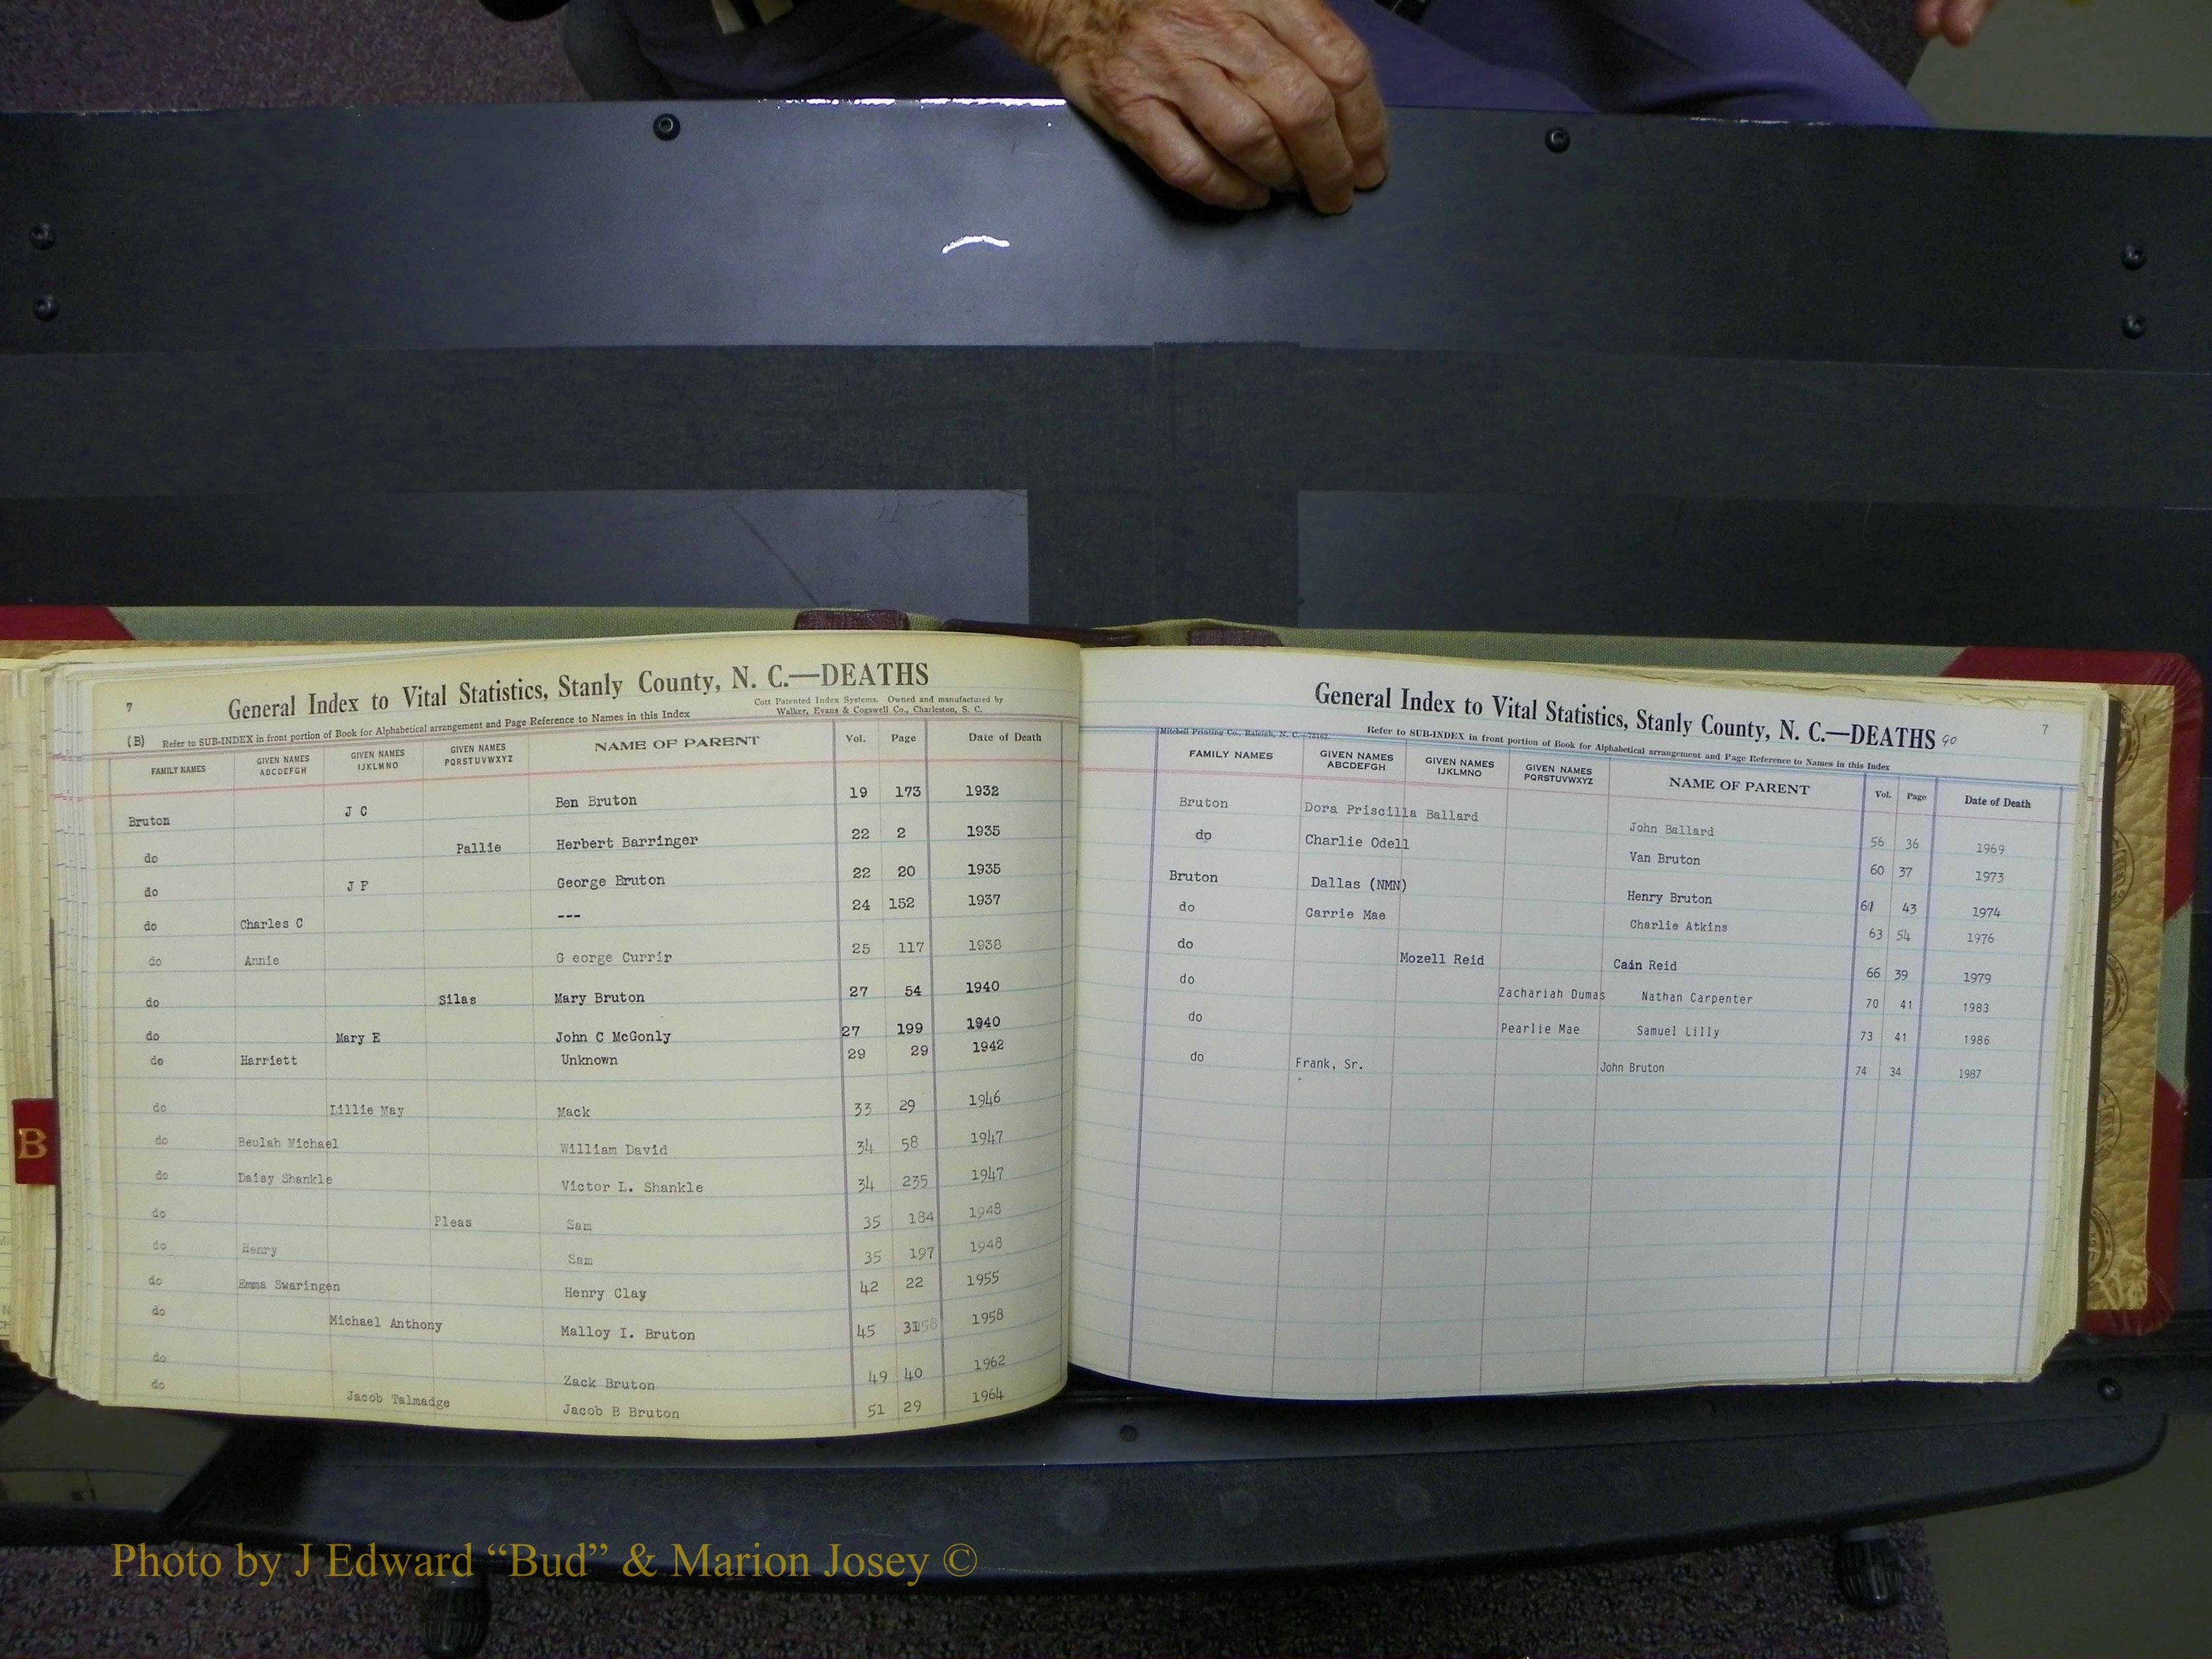 7
General Index to Vital Statistics, Stanly County, N. C.—DEATHS
Cott Patented Index Systems. Owned and manufactured by
Walker, Evans & Cogswell Co., Charleston, S. C.
(B) Refer to SUB-INDEX in front portion of Book for Alphabetical arrangement and Page Reference to Names in this Index
FAMILY NAMES GIVEN NAMES ABCDEFGH GIVEN NAMES IJKLMNO GIVEN NAMES PQRSTUVWXYZ NAME OF PARENT Vol. Page Date of Death
Bruton J C Ben Bruton 19 173 1932
do Pallie Herbert Barringer 22 2 1935
do J F George Bruton 22 20 1935
do Charles C --- 24 152 1937
do Annie G eorge Currir 25 117 1938
do Silas Mary Bruton 27 54 1940
do Mary E John C McGonly 27 199 1940
do Harriett Unknown 29 29 1942
do Lillie May Mack 33 29 1946
do Beulah Michael William David 34 58 1947
do Daisy Shankle Victor L. Shankle 34 235 1947
do Pleas Sam 35 184 1948
do Henry Sam 35 197 1948
do Emma Swaringen Henry Clay 42 22 1955
do Michael Anthony Malloy I. Bruton 45 1958
do Zack Bruton 49 40 1962
do Jacob Talmadge Jacob B Bruton 51 29 1964
B
General Index to Vital Statistics, Stanly County, N. C.—DEATHS 90
7
Mitchell Printing Co., Raleigh, N. C.
Refer to SUB-INDEX in front portion of Book for Alphabetical arrangement and Page Reference to Names in this Index
FAMILY NAMES GIVEN NAMES ABCDEFGH GIVEN NAMES IJKLMNO GIVEN NAMES PQRSTUVWXYZ NAME OF PARENT Vol. Page Date of Death
Bruton Dora Priscilla Ballard John Ballard 56 36 1969
do Charlie Odell Van Bruton 60 37 1973
Bruton Dallas (NMN) Henry Bruton 61 43 1974
do Carrie Mae Charlie Atkins 63 54 1976
do Mozell Reid Cain Reid 66 39 1979
do Zachariah Dumas Nathan Carpenter 70 41 1983
do Pearlie Mae Samuel Lilly 73 41 1986
do Frank, Sr. John Bruton 74 34 1987
Photo by J Edward “Bud” & Marion Josey ©